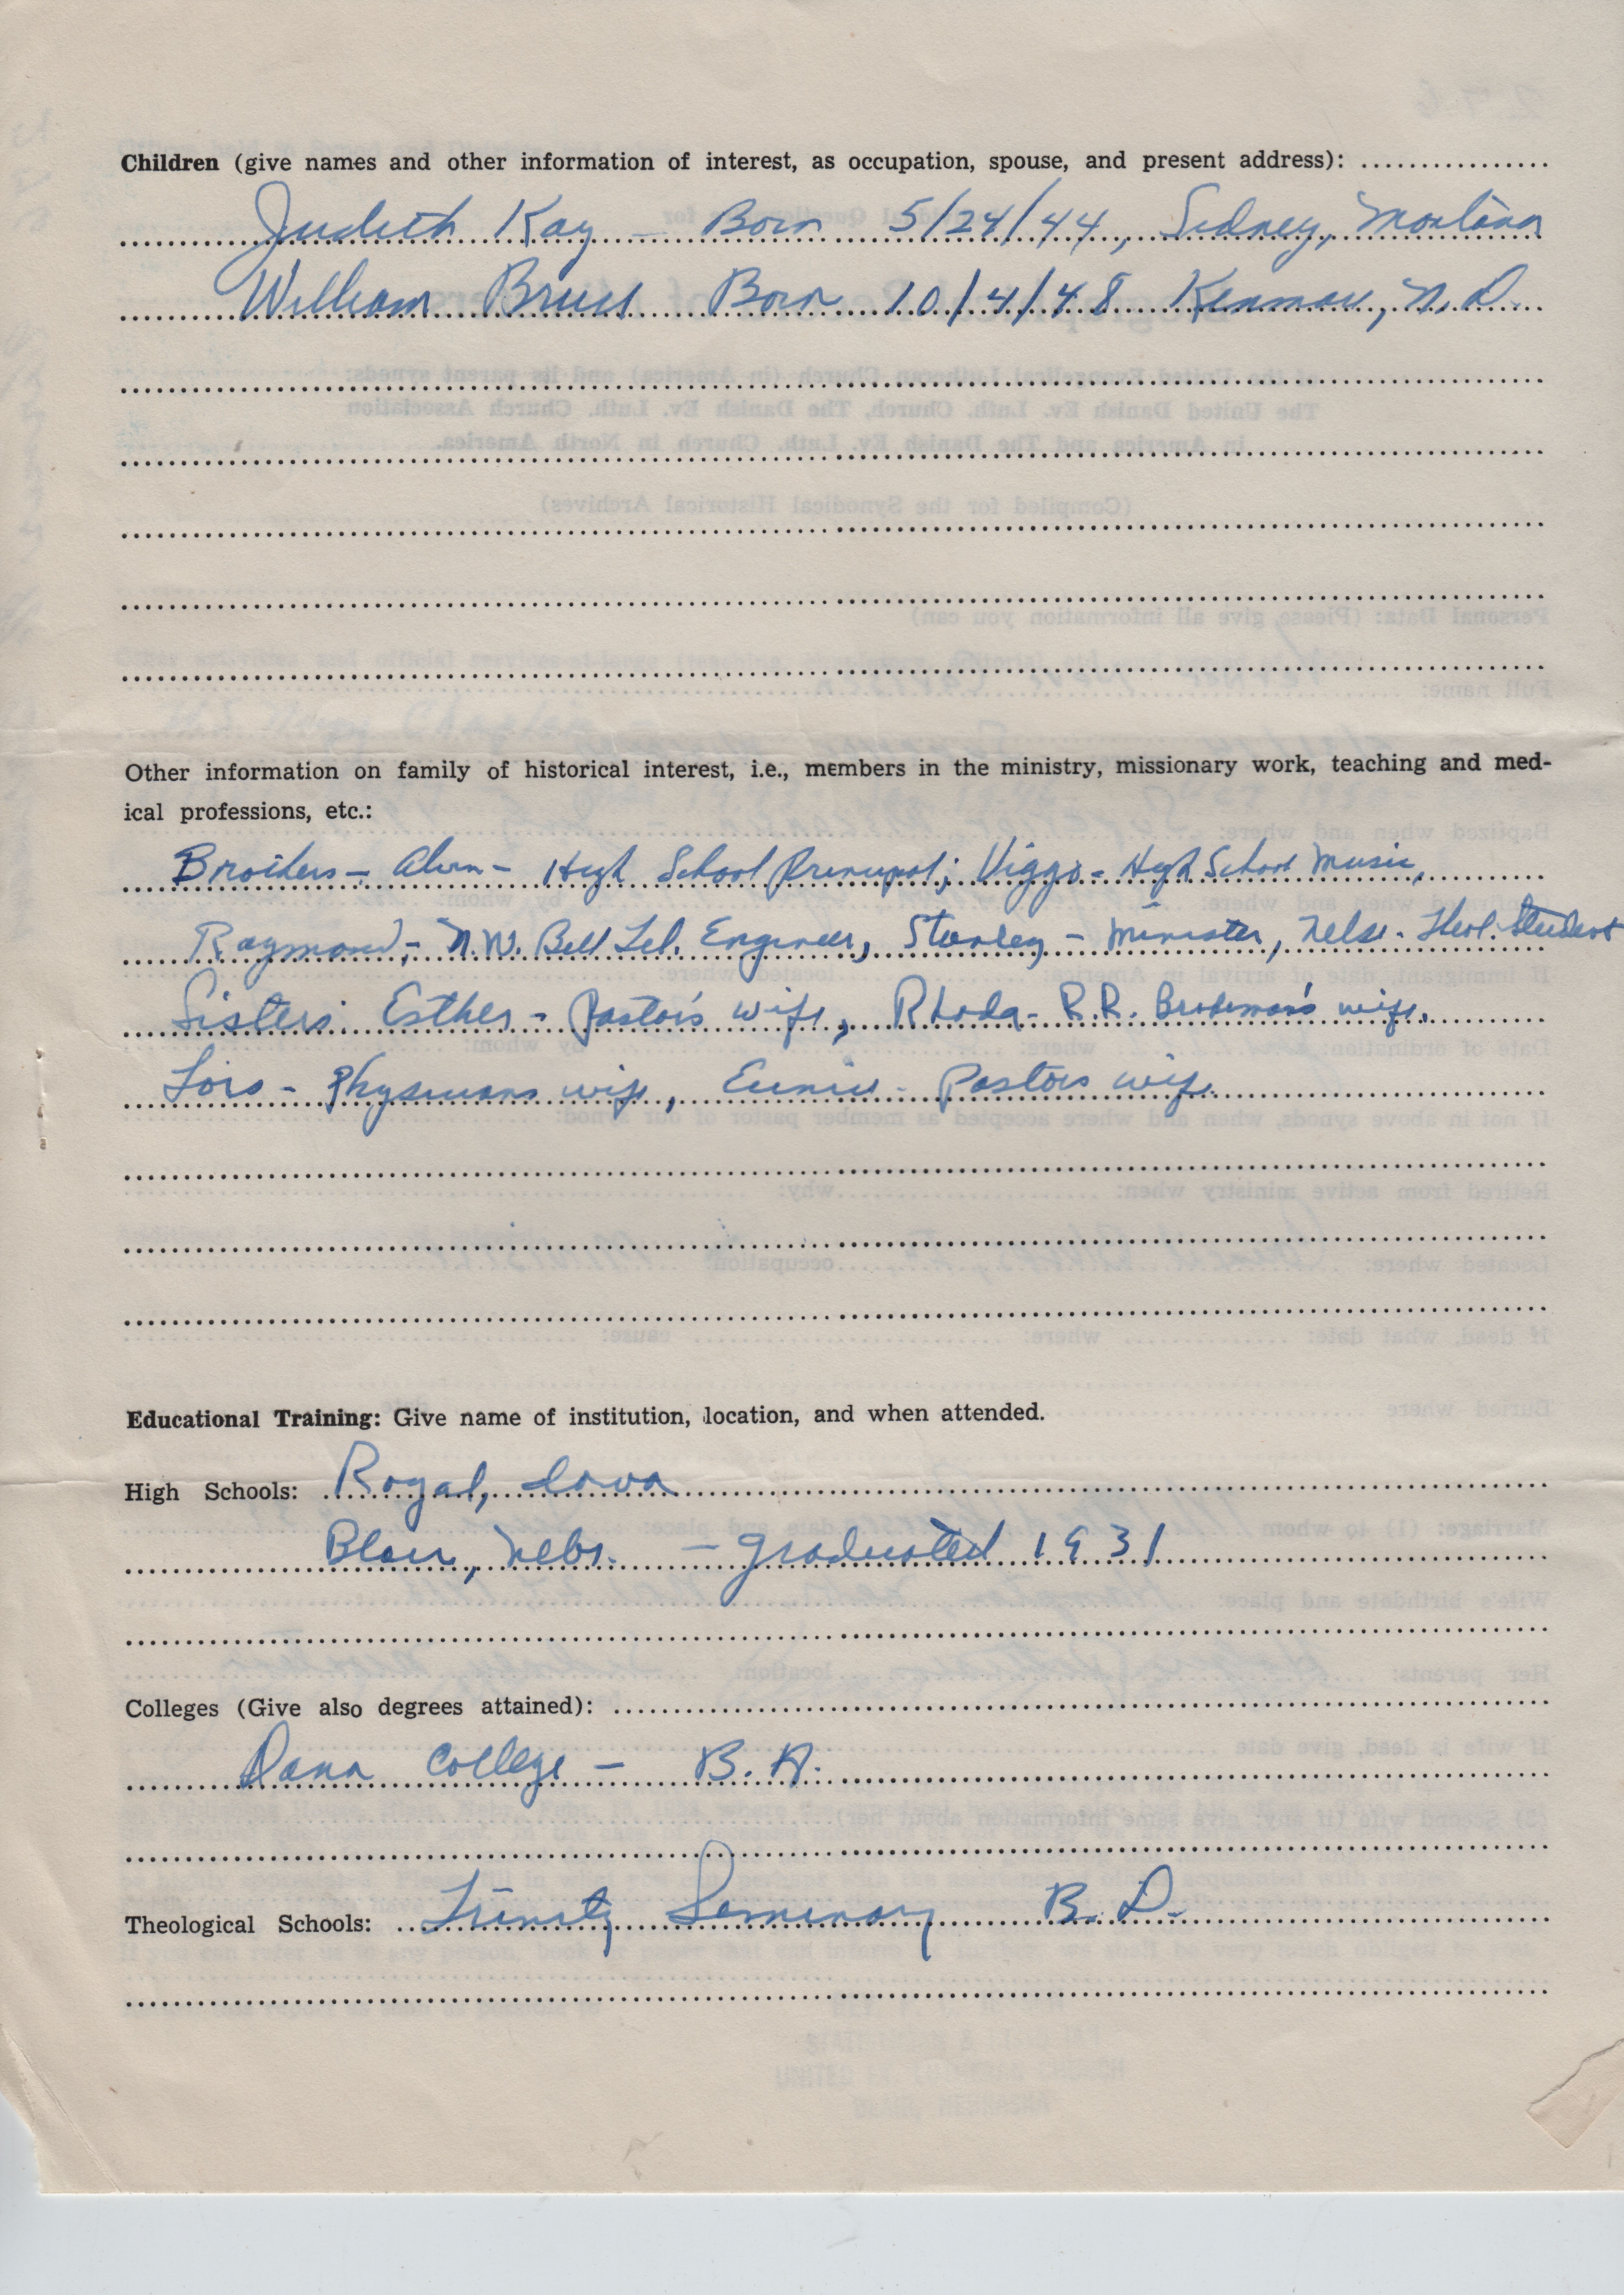 Children (give names and other information of interest, as occupation, spouse, and present address):
Judith Kay – Born 5/24/44, Sidney, Montana
William Bruce Born 10/4/48 Kenmare, N.D.
Other information on family of historical interest, i.e., members in the ministry, missionary work, teaching and med-
ical professions, etc.:
Brothers – Alvin – High School Principal; Viggo – High School Music,
Raymond, – N.W. Bell Tel. Engineer, Stanley – Minister, Nels – Theol. Student
Sisters: Esther – Pastor's wife, Rhoda – R.R. Brakeman's wife,
Lois – Physicians wife, Eunice – Pastors wife.
Educational Training: Give name of institution, location, and when attended.
High Schools: Royal, Iowa
Blair, Nebr. – graduated 1931
Colleges (Give also degrees attained):
Dana College – B.A.
Theological Schools: Trinity Seminary B.D.